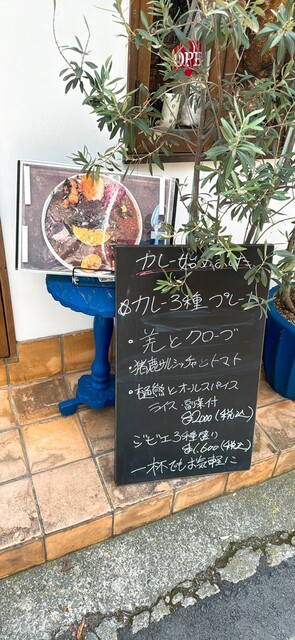 OPE
カレー始めました
カレー3種プレート
・羌とクローブ
・猪鹿サルシッチャとトマト
・穴熊とオールスパイス
ライス・副菜付
¥2000(税込)
ジビエ3種盛り
¥1,600(税込)
一杯でもお気軽に